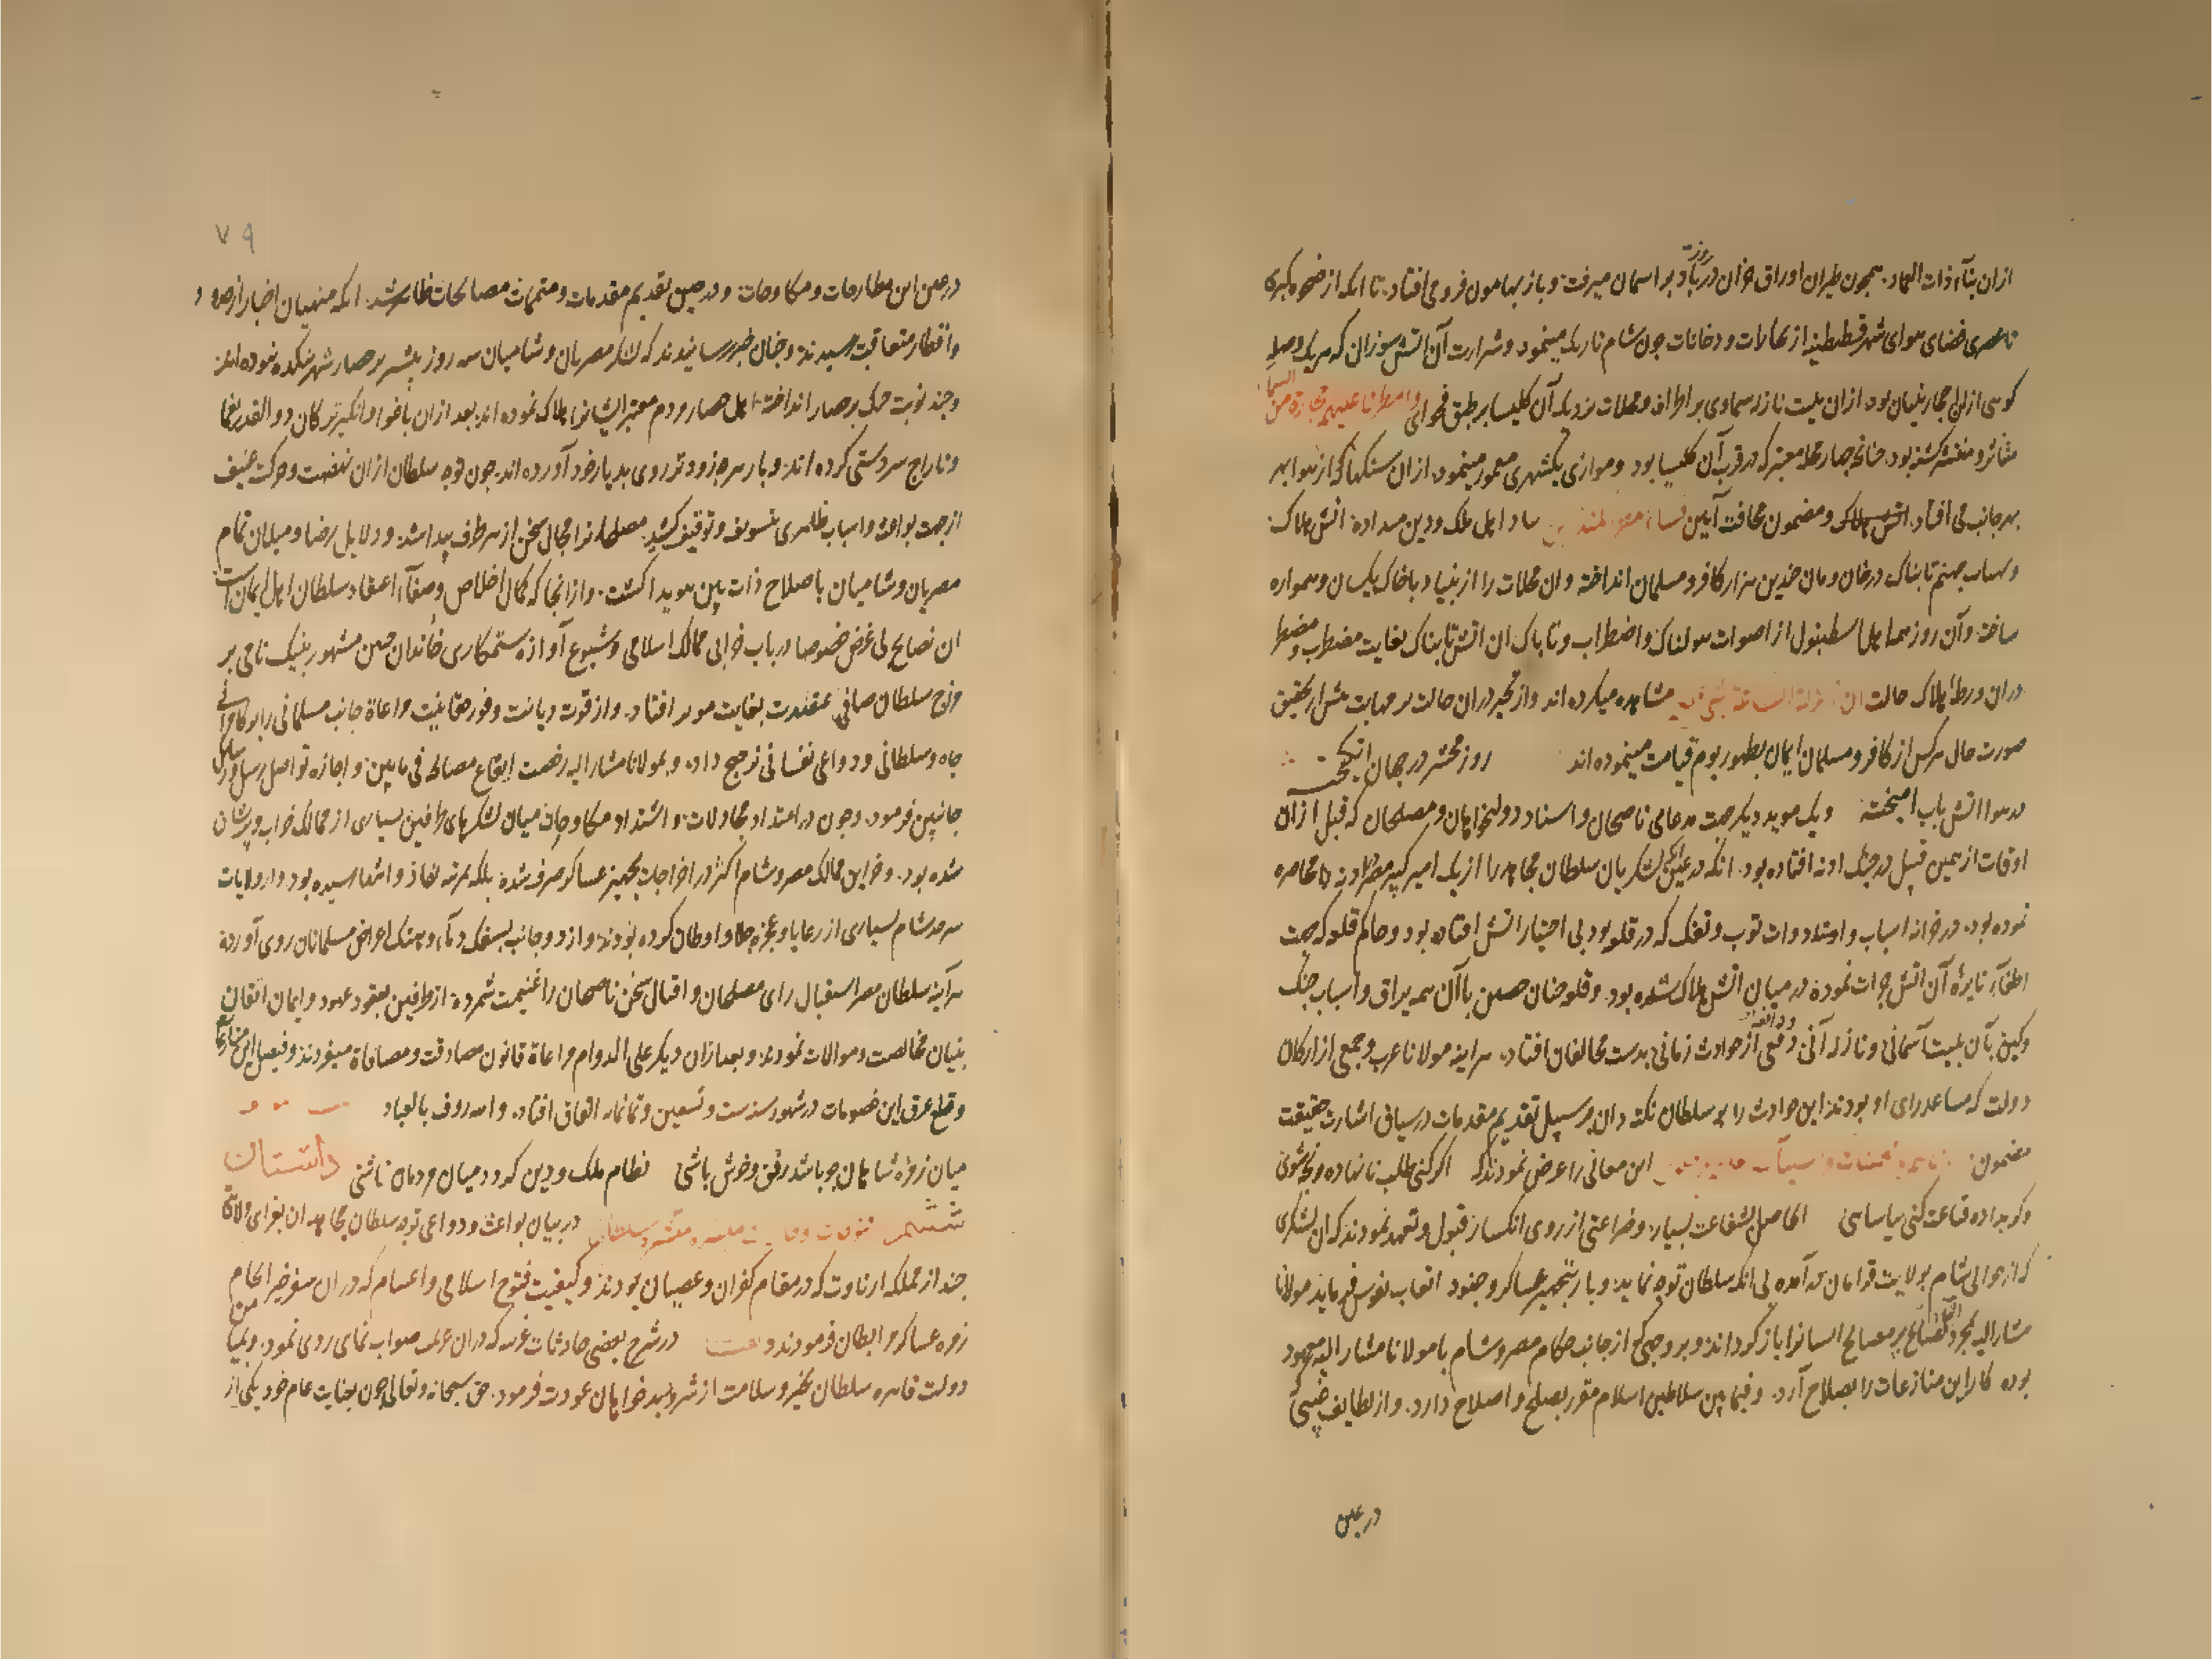 ازان بنآء ذات العماد. همچون طیران اوراق خزان در روز باد بر اسمان میرفت و باز بهامون فرو می افتاد. تا انکه از ضحوه کبری
تا عصری فضای هوای شهر قسطنطنیه از بخارات و دخانات چون شام تاریک مینمود و شرارت آن اتش سوزان که هر یک
کوهی ازان احجار بنیان بود. ازان بلیت نازله سماوی بر اطراف و محلات نزدیک آن کلیسا بر طبق فحوای وامطرنا علیهم حجارة من السماء
متناثر و منتشر کشته بود. چنانچه چهار محله معتبر که در قرب آن کلیسا بود و موازی یکشهری معمور مینمود. ازان سنکها که از هوا بهر
بهر جانب می افتاد. و مضمون مخافت آیین اهل ملک و دین میداده. اتش هلاک
و لهیاب جهنم تابناک در خان و مان چندین هزار کافر و مسلمان انداخته و ان محلات را از بنیاد با خاک یکسان و همواره
ساخته. و آن روز همه اهل اسطنبول از اصوات هولناک و اضطراب و تاباک ان اتش تابناک بغایت مضطرب و مضطر
دران ورطهٔ هلاک حالت ان زلزلة الساعة شیء عظیم مشاهده میکرده اند و از تحیر دران حالت پر مهابت
صورت حال هر کس از کافر و مسلمان ایمان بظهور یوم قیامت مینموده اند روز محشر در جهان انکیخته
در هوا اتش بآب امیخته و یک موید دیکر جهت مدعای ناصحان و اسناد دولتخواهان و مصلحان که قبل ازان
اوقات از همین قبیل در جنک ادنه افتاده بود. انکه در لشکریان سلطان مجاهد را از یک امیر کبیر مصر ادنه را محاصره
نموده بود. در خزانه اسباب و ادوات توپ و تفنک که در قلعه بود بی اختیار اتش افتاده بود و حاکم قلعه که جهت
اطفآء نایرهٔ آن اتش جرات نموده در میان اتش هلاک شده بود. و قلعه چنان حصین با آن همه یراق و اسباب جنک
بآن بلیت آسمانی و نازله آنی و واقعه از حوادث زمانی بدست مخالفان افتاده. هراینه مولانا عرب و جمعی از ارکان
دولت که مساعد رای او بودند این حوادث را بر سلطان نکته دان بر سبیل تقدیم مقدمات در سیاق اشارت حقیقت
مضمون این معانی را عرض نمودند که اکر کنی طلب نانهاده رنجه شوی
وکر بداده قناعت کنی بیاسایی الحاصل بشفاعت بسیار و ضراعتی از روی انکسار قبول و تعهد نمودند که ان لشکری
که از حوالی شام بولایت قرامان در آمده بی انکه سلطان توجه نماید و بار تجهیز عساکر و جنود اتعاب نفوس فرماید مولانا
مشار الیه بمجرد القآء نصایح پر مصالح ایشانرا باز کرداند. و بر وجهی که از جانب حکام مصر و شام با مولانا مشار الیه معهود
بوده کار این منازعات را بصلاح آرد. و فیما بین سلاطین اسلام مقرر بصلح و اصلاح دارد. و از لطایف غیبی
در عین
۷۹
در عین این مطارحات و مکاوحات و در حین تقدیم مقدمات و متممات مصالحات ظاهر شد. انکه منهیان اخبار از
واقطار متعاقب رسیدند. و چنان خبر رسانیدند که لشکر مصریان و شامیان سه روز بیشتر بر حصار شهر نیکده نبوده اند
و چند نوبت جنک بر حصار انداخته اهل حصار و دم معتبر ایشانرا هلاک نموده اند. بعد ازان باغوا و انکیز ترکان ذوالقدر یغما
و تاراج سردستی کرده اند. و بار هر چه زودتر روی بدیار خود آورده اند. چون توجه سلطان ازان نهضت و حرکت عنیف
از جهت بواعث و اسباب ظاهری بتسویف و توقیف کشید. مصلحانرا مجال سخن از هر طرف پیدا شد. و دلایل رضا و میلان تمام
مصریان و شامیان باصلاح ذات بین هویدا کشت. و از انجا که کمال اخلاص و صفآء اعتقاد سلطان اهل ایمان است
ان نصایح بی غرض خصوصا در باب خرابی ممالک اسلامی و شیوع آوازه ستمکاری خاندان چنین مشهور بنیک نامی بر
مزاج سلطان صافی عقیدت بغایت موثر افتاد. و از قوت دیانت و فور حقانیت مراعاة جانب مسلمانی را بر کامرانی
جاه و سلطانی و دواعی نفسانی ترجیح داده و بمولانا مشار الیه رخصت ایقاع مصالحه فی مابین و اجازه تواصل رسل و رسایل
جانبین فرمود. و چون در امتداد مجادلات و اشتداد مکاوحات میان لشکرهای طرفین بسیاری از ممالک خراب و پریشان
شده بود. و خزاین ممالک مصر و شام اکثر در اخراجات تجهیز عساکر صرف شده بلکه بمرتبه نفاد و انتها رسیده بود. و از ولایات
سرحد شام بسیاری از رعایا و عجزه جلا و اوطان کرده بودند. و از دو جانب بسفک دمآء و هتک اعراض مسلمانان روی آورده
هرآینه سلطان مصر استقبال رای مصلحان و اقبال سخن ناصحان را غنیمت شمرده. از طرفین بعقود عهود و ایمان اتقان
بنیان مخالصت و موالات نمودند. و بعد ازان دیکر علی الدوام مراعاة قانون مصادقت و مصافاة مینمودند و فیصل این منازعات
و قطع عرق این خصومات در شهور سنه ست و تسعین و ثمانمایه اتفاق افتاد. والله رؤف بالعباد
میان زمرهٔ شاهان چو باشد رفق و خوش باشی نظام ملک و دین کردد میان مردمان ناشی داستان
ششم در بیان بواعث و دواعی توجه سلطان مجاهدان بغزای ولایتی
چند از مملکه ارناوت که در مقام کفران و عصیان بودند. و کیفیت فتوح اسلامی و اغتنام که دران سفر خیر انجام
زمره عساکر مرابطان فرمودند و در شرح بعضی حادثات غریبه که دران صواب نمای روی نمود. و بمیامن
دولت قاهره سلطان بخیر و سلامت از شر بدخواهان عودت فرمود. حق سبحانه و تعالی چون بعنایت عام خود یکی از